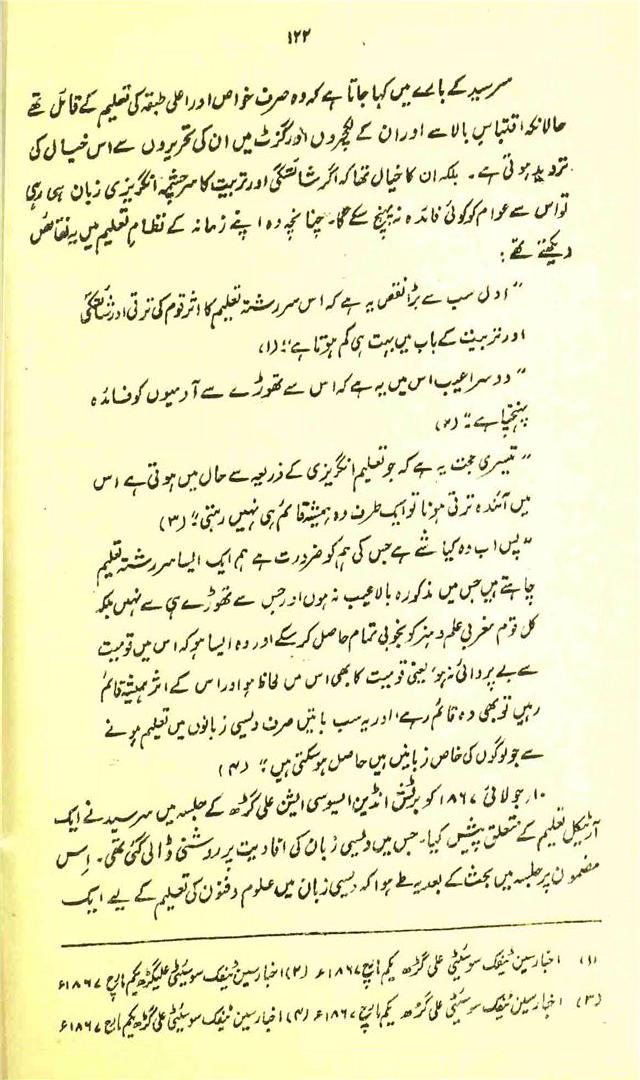 ۱۲۲
سرسید کے بارے میں کہا جاتا ہے کہ وہ صرف خواص اور اعلیٰ طبقہ کی تعلیم کے قائل تھے
حالانکہ اقتباس بالا سے اور ان کے لکچروں اور گزٹ میں ان کی تحریروں سے اس خیال کی
تردید ہوتی ہے۔ بلکہ ان کا خیال تھا کہ اگر شائستگی اور تربیت کا سرچشمہ انگریزی زبان ہی رہی
تو اس سے عوام کو کوئی فائدہ نہ پہنچ سکے گا۔ چنانچہ وہ اپنے زمانہ کے نظام تعلیم میں یہ نقائص
دیکھتے تھے :
"اول سب سے بڑا نقص یہ ہے کہ اس سررشتہ تعلیم کا اثر قوم کی ترقی اور شائستگی
اور تربیت کے باب میں بہت ہی کم ہوتا ہے"۔ (۱)
"دوسرا عیب اس میں یہ ہے کہ اس سے تھوڑے سے آدمیوں کو فائدہ
پہنچتا ہے۔" (۲)
"تیسری حجت یہ ہے کہ جو تعلیم انگریزی کے ذریعہ سے حال میں ہوتی ہے اس
میں آئندہ ترقی ہونا تو ایک طرف وہ ہمیشہ قائم ہی نہیں رہتی"۔ (۳)
"پس اب وہ کیا شے ہے جس کی ہم کو ضرورت ہے ہم ایک ایسا سررشتہ تعلیم
چاہتے ہیں جس میں مذکورہ بالا عیب نہ ہوں اور جس سے تھوڑے ہی سے نہیں بلکہ
کل قوم مغربی علم و ہنر کو بخوبی تمام حاصل کر سکے اور وہ ایسا ہو کہ اس میں قومیت
سے بے پروائی نہ ہو، یعنی قومیت کا بھی اس میں لحاظ ہو اور اس کے اثر ہمیشہ قائم
رہیں تو بھی وہ قائم رہے، اور یہ سب باتیں صرف دیسی زبانوں میں تعلیم ہونے
سے جو لوگوں کی خاص زبانیں ہیں حاصل ہو سکتی ہیں۔" (۴)
۱۰ر جولائی ۱۸۶۷ کو برٹش انڈین ایسوسی ایشن علی گڑھ کے جلسہ میں سرسید نے ایک
آرٹیکل تعلیم کے متعلق پیش کیا۔ جس میں دیسی زبان کی افادیت پر روشنی ڈالی گئی تھی۔ اس
مضمون پر جلسہ میں بحث کے بعد یہ طے ہوا کہ دیسی زبان میں علوم و فنون کی تعلیم کے لیے ایک
(۱) اخبار سین ٹیفک سوسیٹی علی گڑھ یکم مارچ ۱۸۶۷ء (۲) اخبار سین ٹیفک سوسیٹی علیگڑھ یکم مارچ ۱۸۶۷ء
(۳) اخبار سین ٹیفک سوسیٹی علی گڑھ یکم مارچ ۱۸۶۷ء (۴) اخبار سین ٹیفک سوسیٹی علی گڑھ یکم مارچ ۱۸۶۷ء